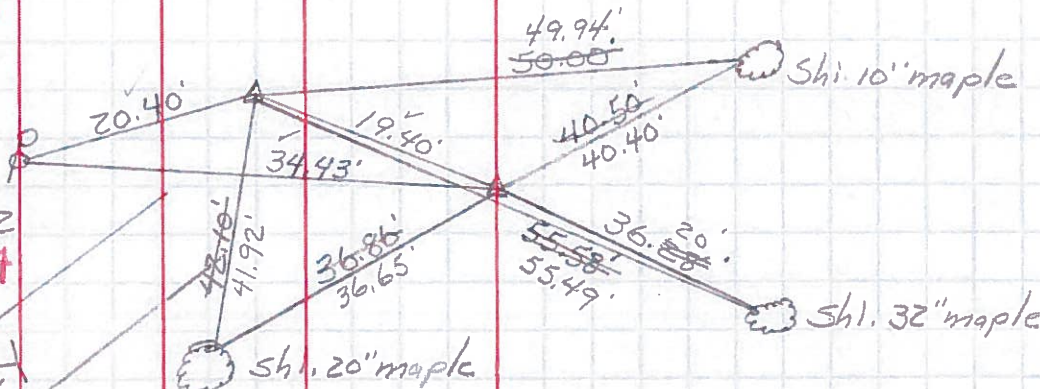 49.94'
50.00'
Shl. 10" maple
20.40'
19.40'
40.50'
40.40'
34.43'
42.10'
41.92'
36.86'
36.65'
55.58'
55.49'
36.20'
Shl. 32" maple
Shl. 20" maple